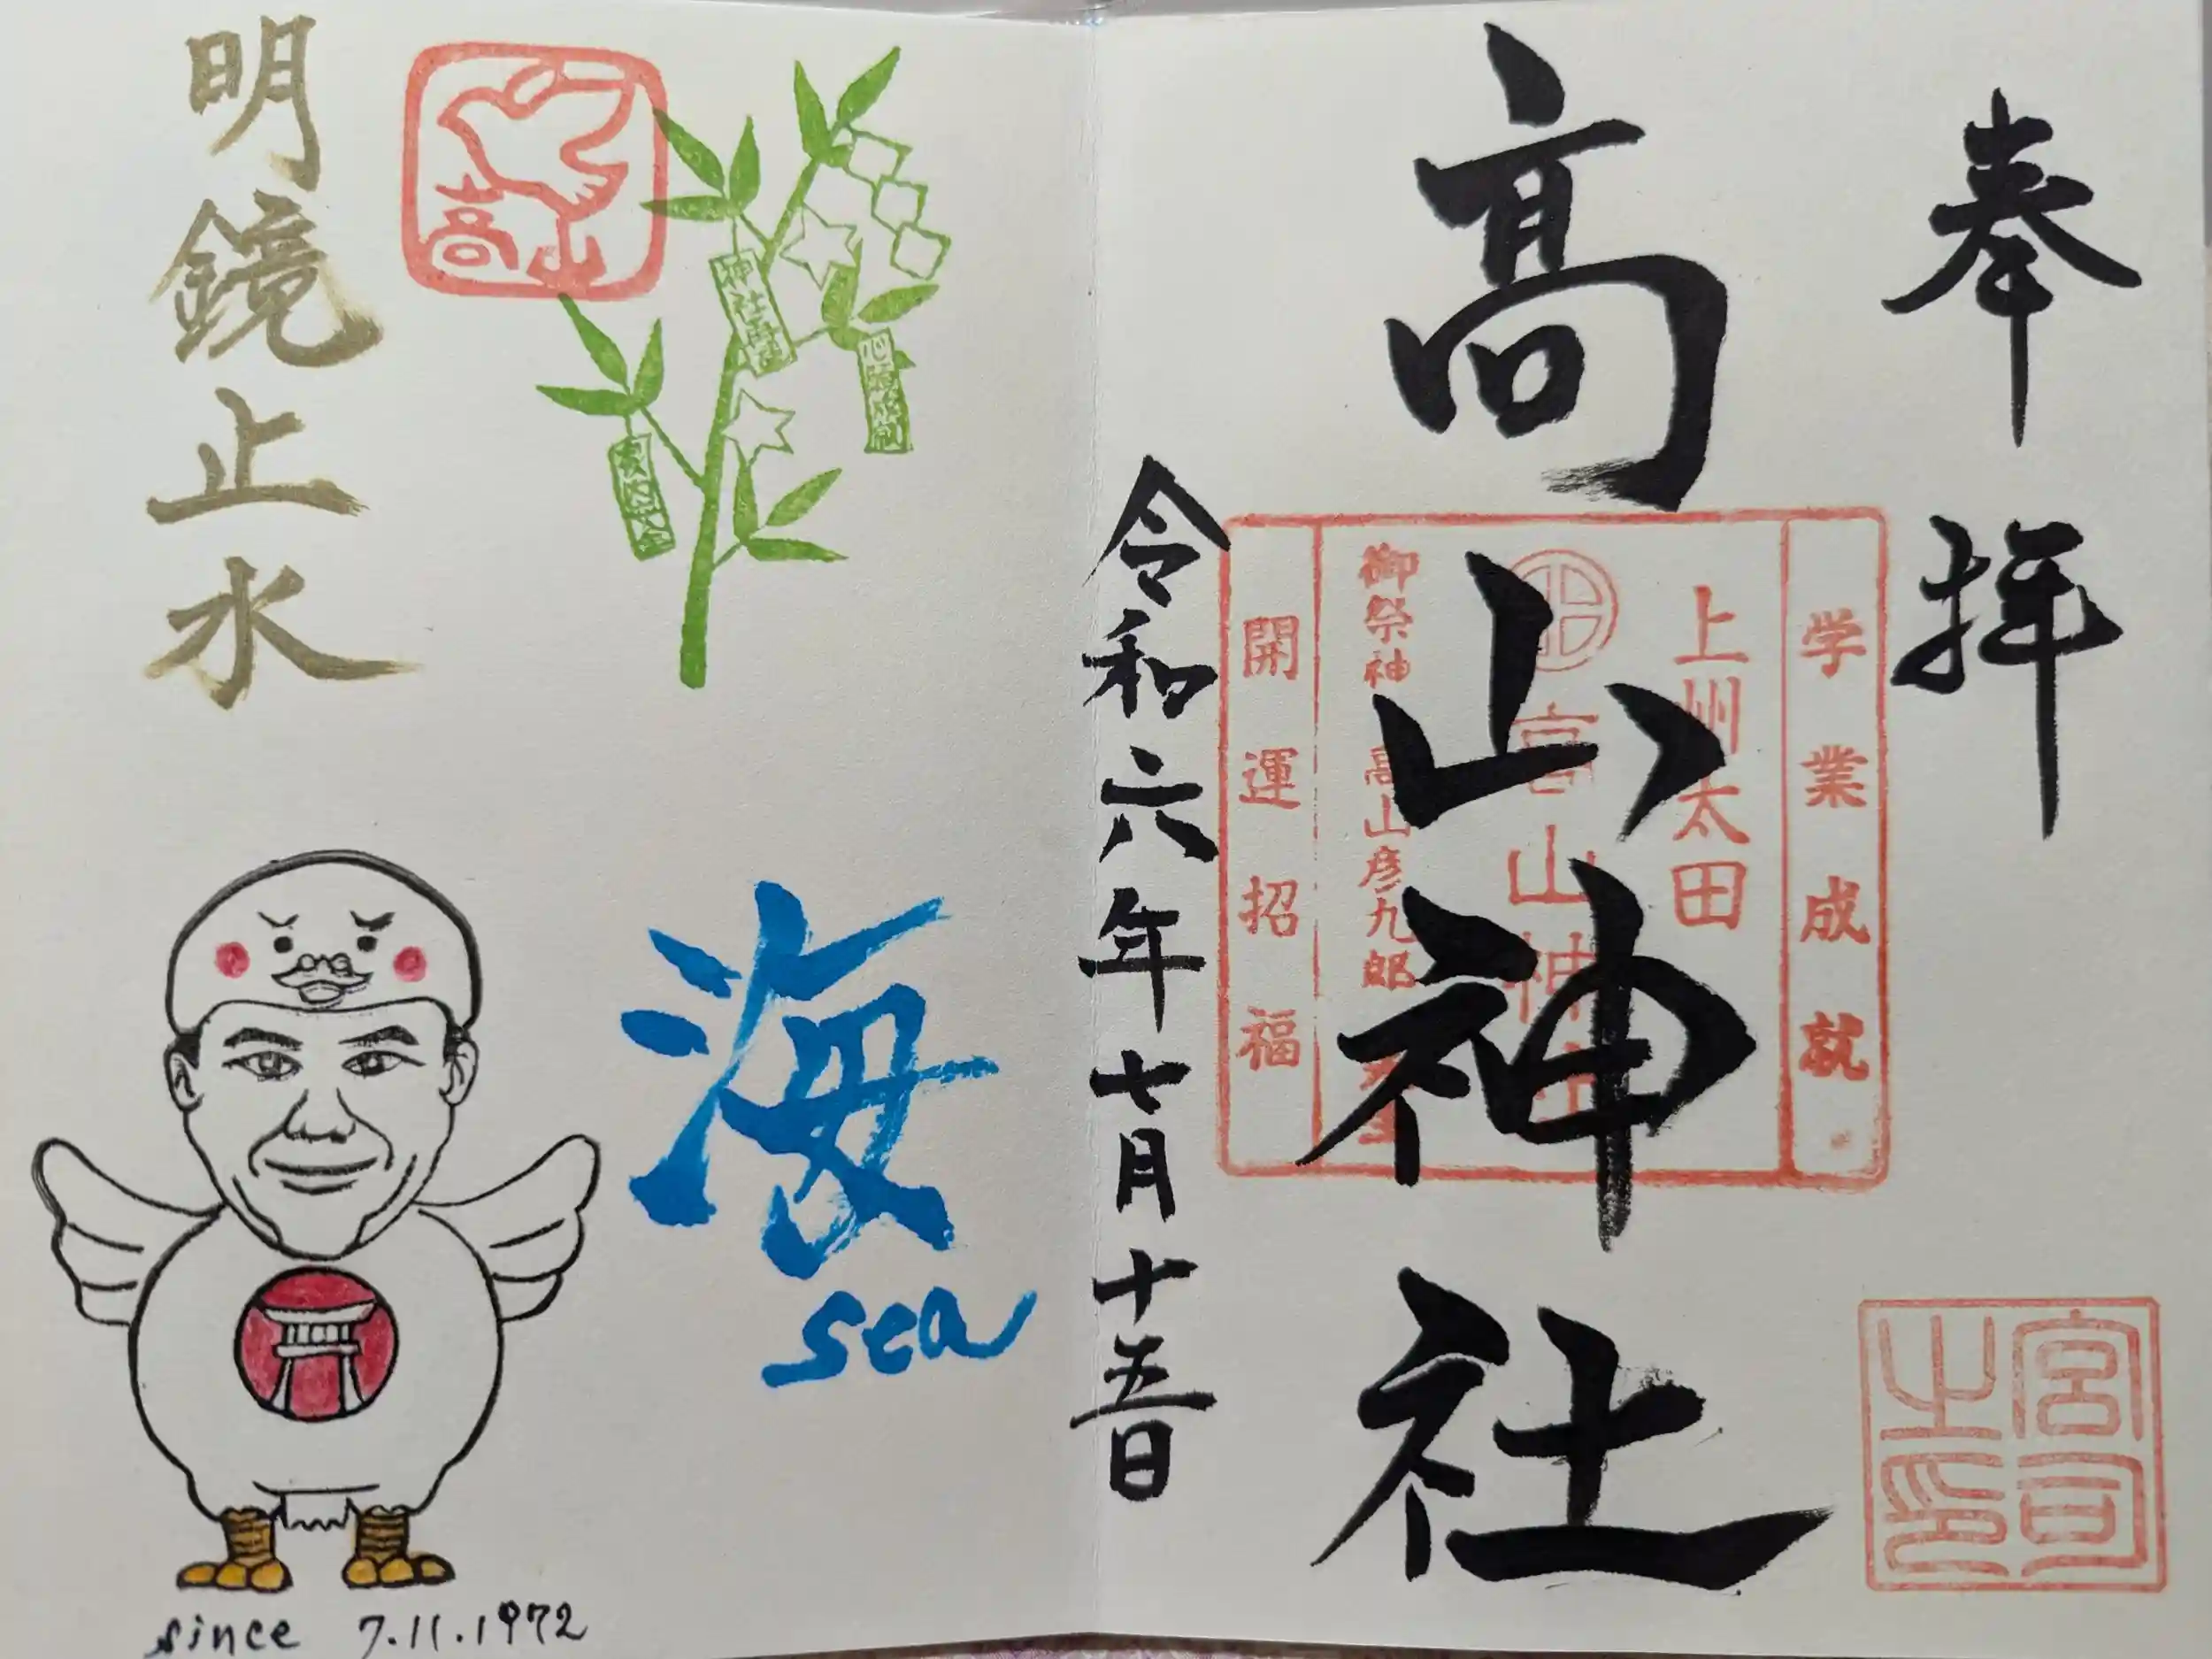 奉拝
高山神社
学業成就
上州太田
高山神社
御祭神 高山彦九郎
開運招福
宮司之印
令和六年七月十五日
高山
神社
心願成就
海
sea
明鏡止水
since 7.11.1972